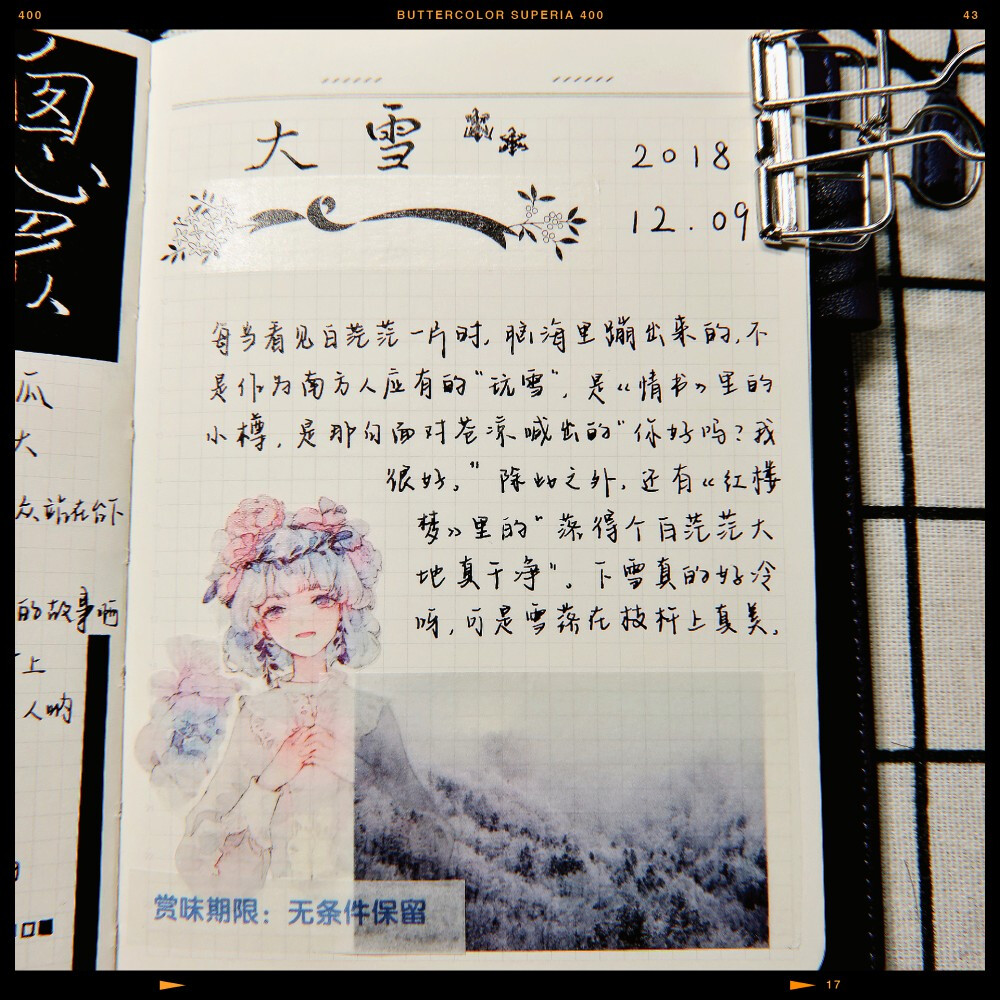 400
BUTTERCOLOR SUPERIA 400
43
大雪
2018
12.09
每当看见白茫茫一片时,脑海里蹦出来的,不
是作为南方人应有的"玩雪",是《情书》里的
小樽,是那句面对苍凉喊出的"你好吗?我
很好。"除此之外,还有《红楼
梦》里的"落得个白茫茫大
地真干净"。下雪真的好冷
呀,可是雪落在枝杆上真美。
赏味期限:无条件保留
瓜
大
众站在台下
的故事啊
上
人呐
17